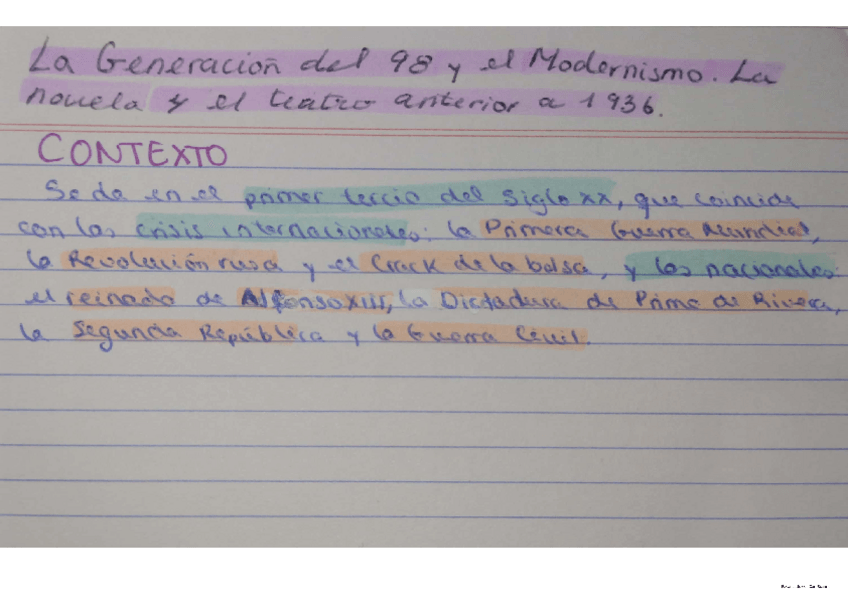 La Generación del 98 y el Modernismo. La
novela y el teatro anterior a 1936.
CONTEXTO
Se da en el primer tercio del siglo XX, que coincide
con las crisis internacionales: la Primera Guerra Mundial,
la Revolución rusa y el Crack de la bolsa, y las nacionales:
el reinado de Alfonso XIII, la Dictadura de Primo de Rivera,
la Segunda República y la Guerra Civil.